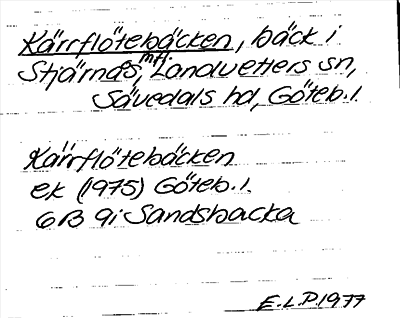 Kärrflötebäcken, bäck i
Stjärnås, mfl. Landvetters sn,
Sävedals hd, Göteb. l.
Kärrflötebäcken
ek (1975) Göteb. l.
6B 9i Sandsbacka
E.L.P. 1977